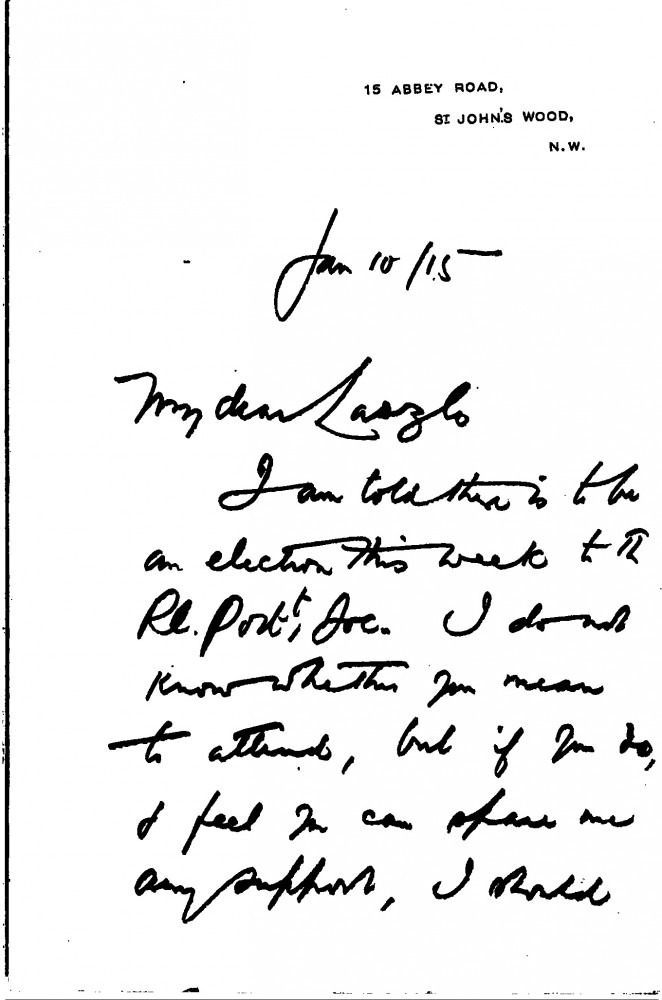 15 ABBEY ROAD,
ST JOHN'S WOOD,
N.W.
Jan 10/15
My dear Laszlo
I am told there is to be
an election this week to the
Rl. Portt, Soc. I do not
know whether you mean
to attend, but if you do,
& feel you can spare me
any support, I should